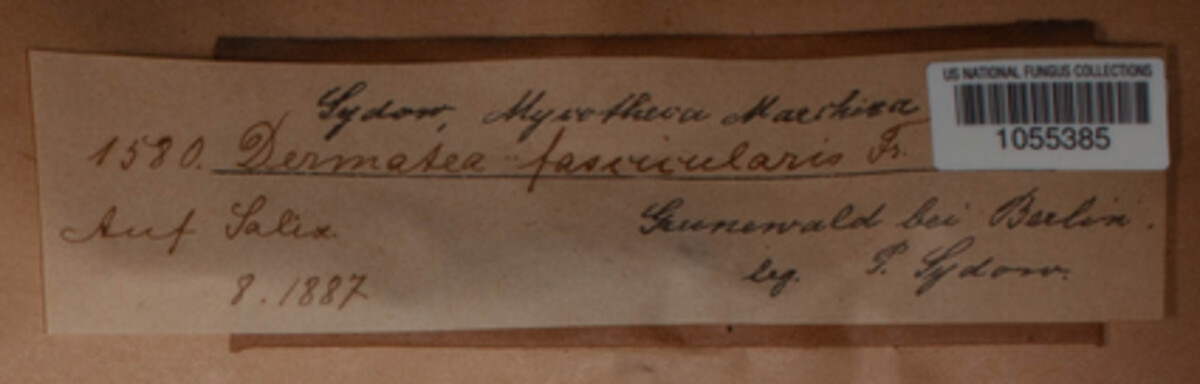 US NATIONAL FUNGUS COLLECTIONS
1055385
Sydow, Mycotheca Marchica
1580. Dermatea fascicularis Fr.
Auf Salix.
Grunewald bei Berlin.
leg. P. Sydow.
8. 1887